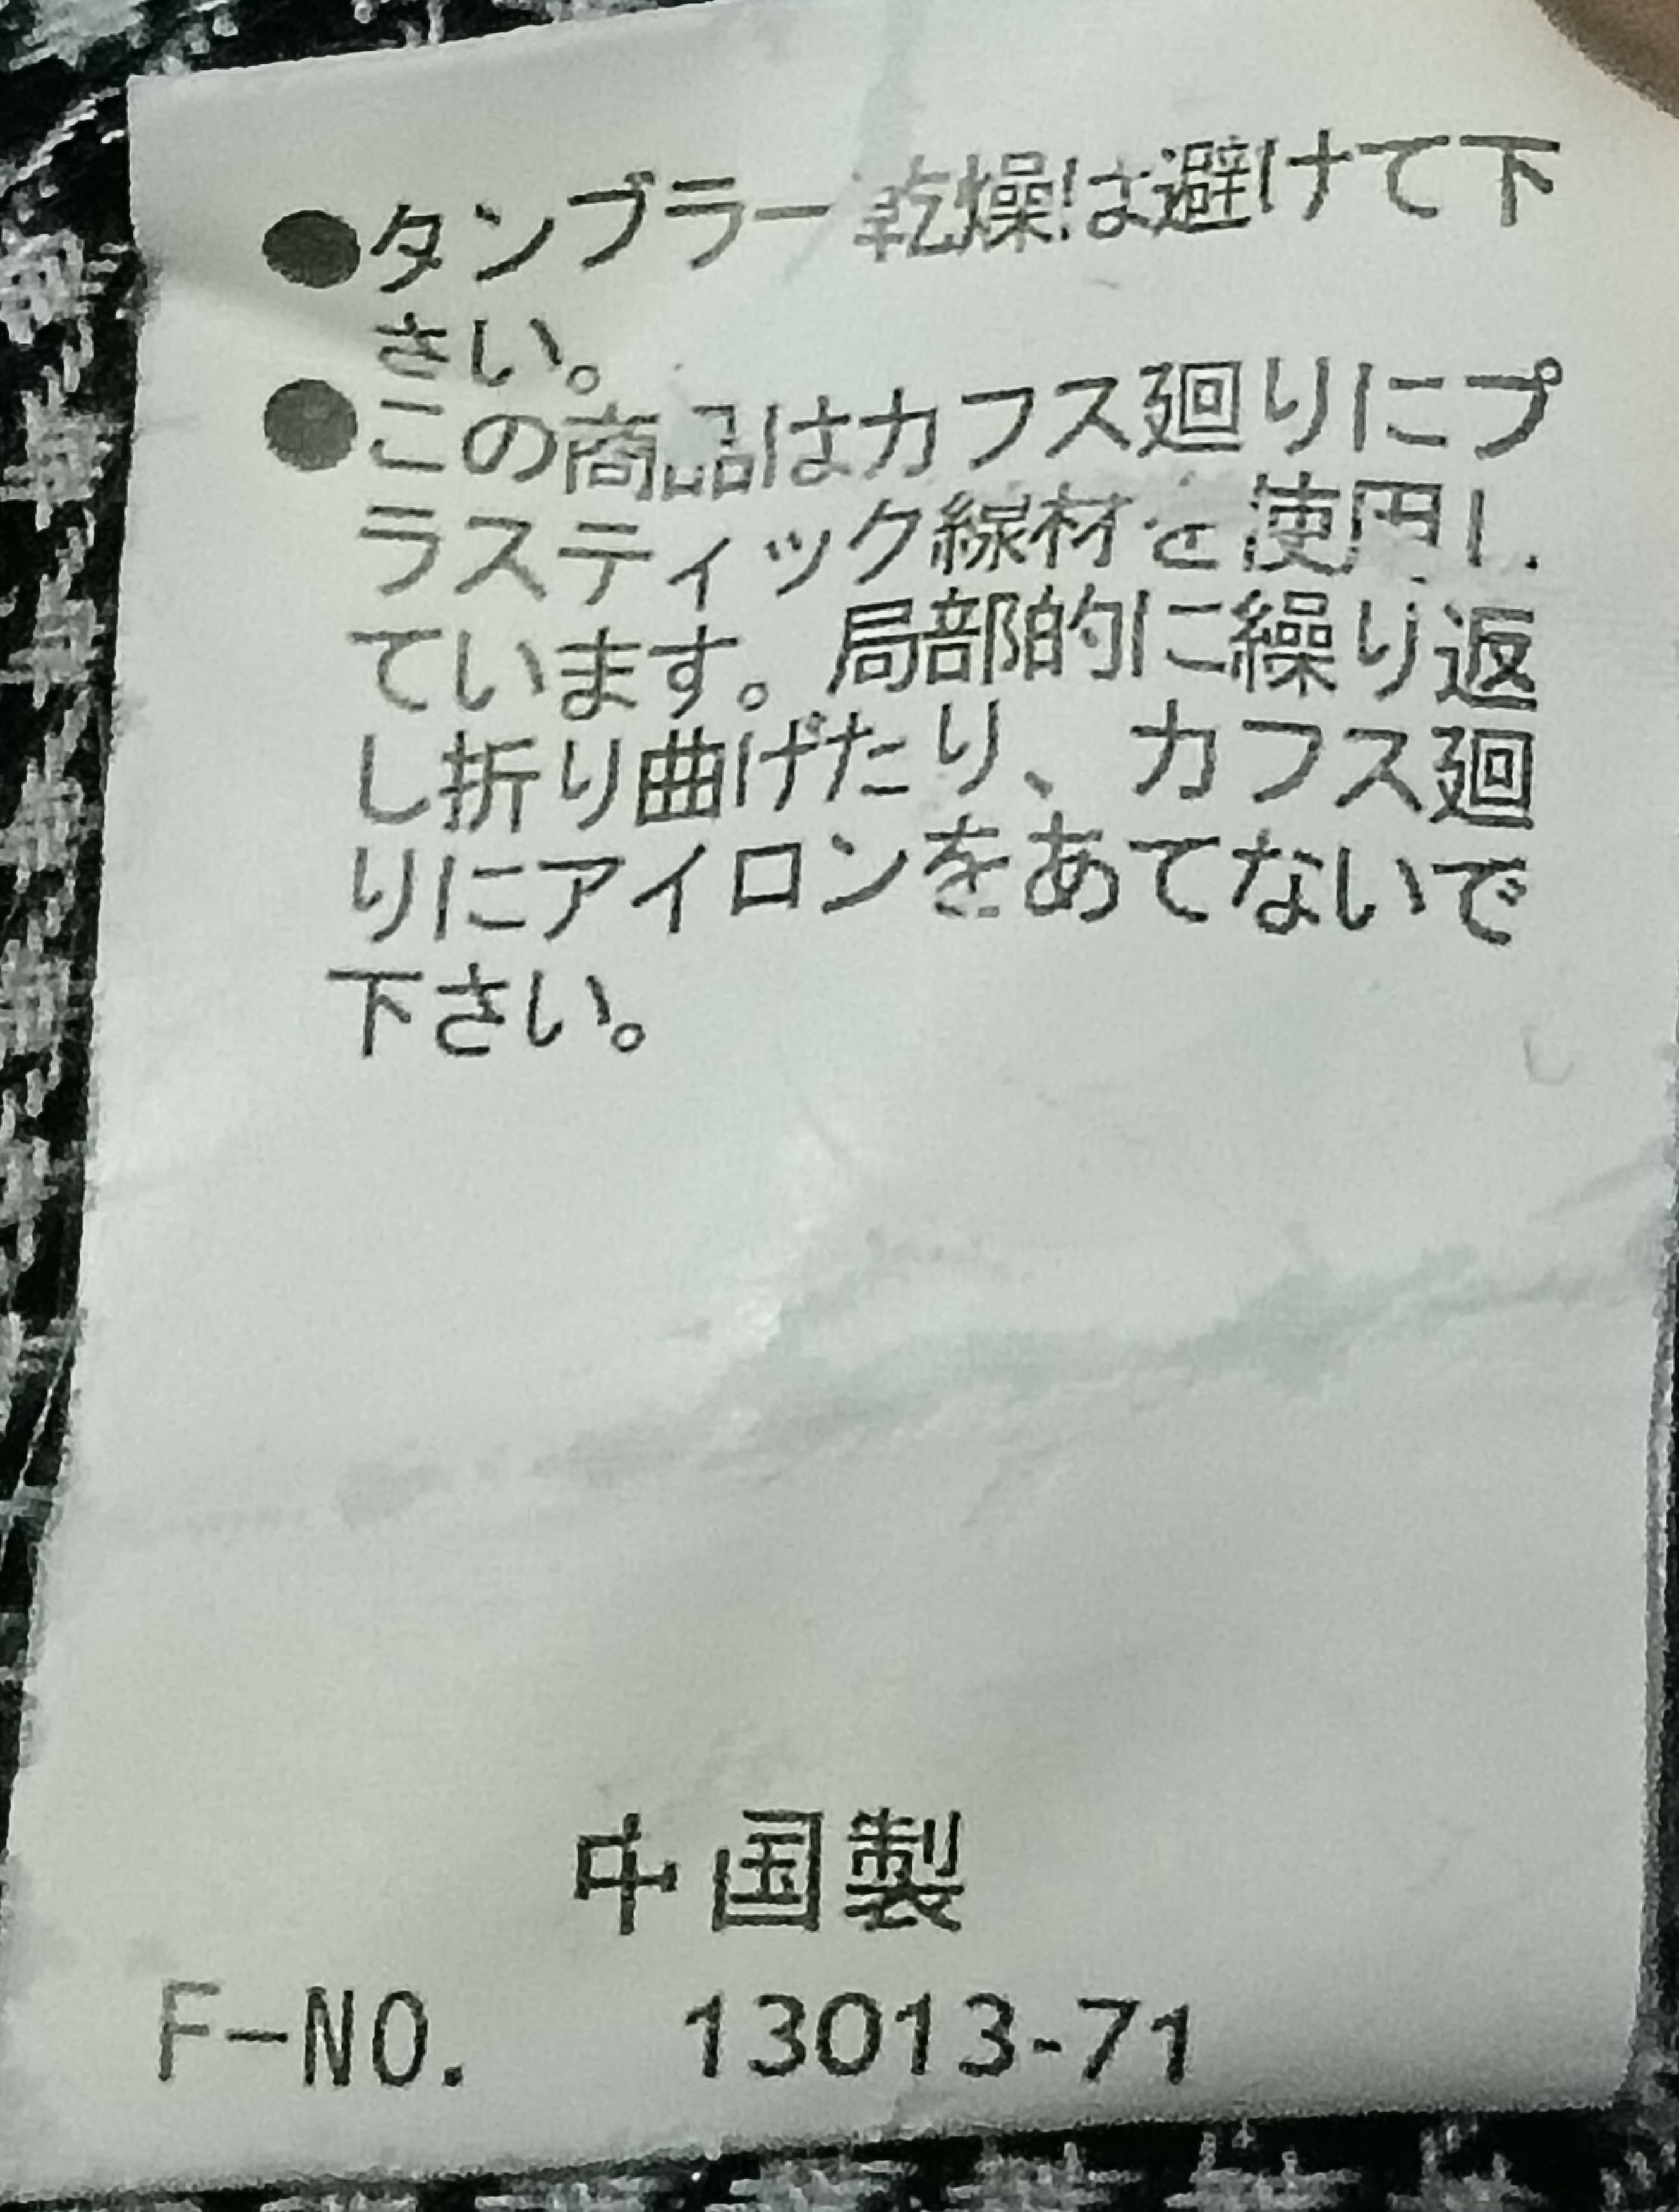 ●タンブラー乾燥は避けて下
さい。
●この商品はカフス廻りにプ
ラスティック線材を使用し
ています。局部的に繰り返
し折り曲げたり、カフス廻
りにアイロンをあてないで
下さい。
中国製
F-NO. 13013-71